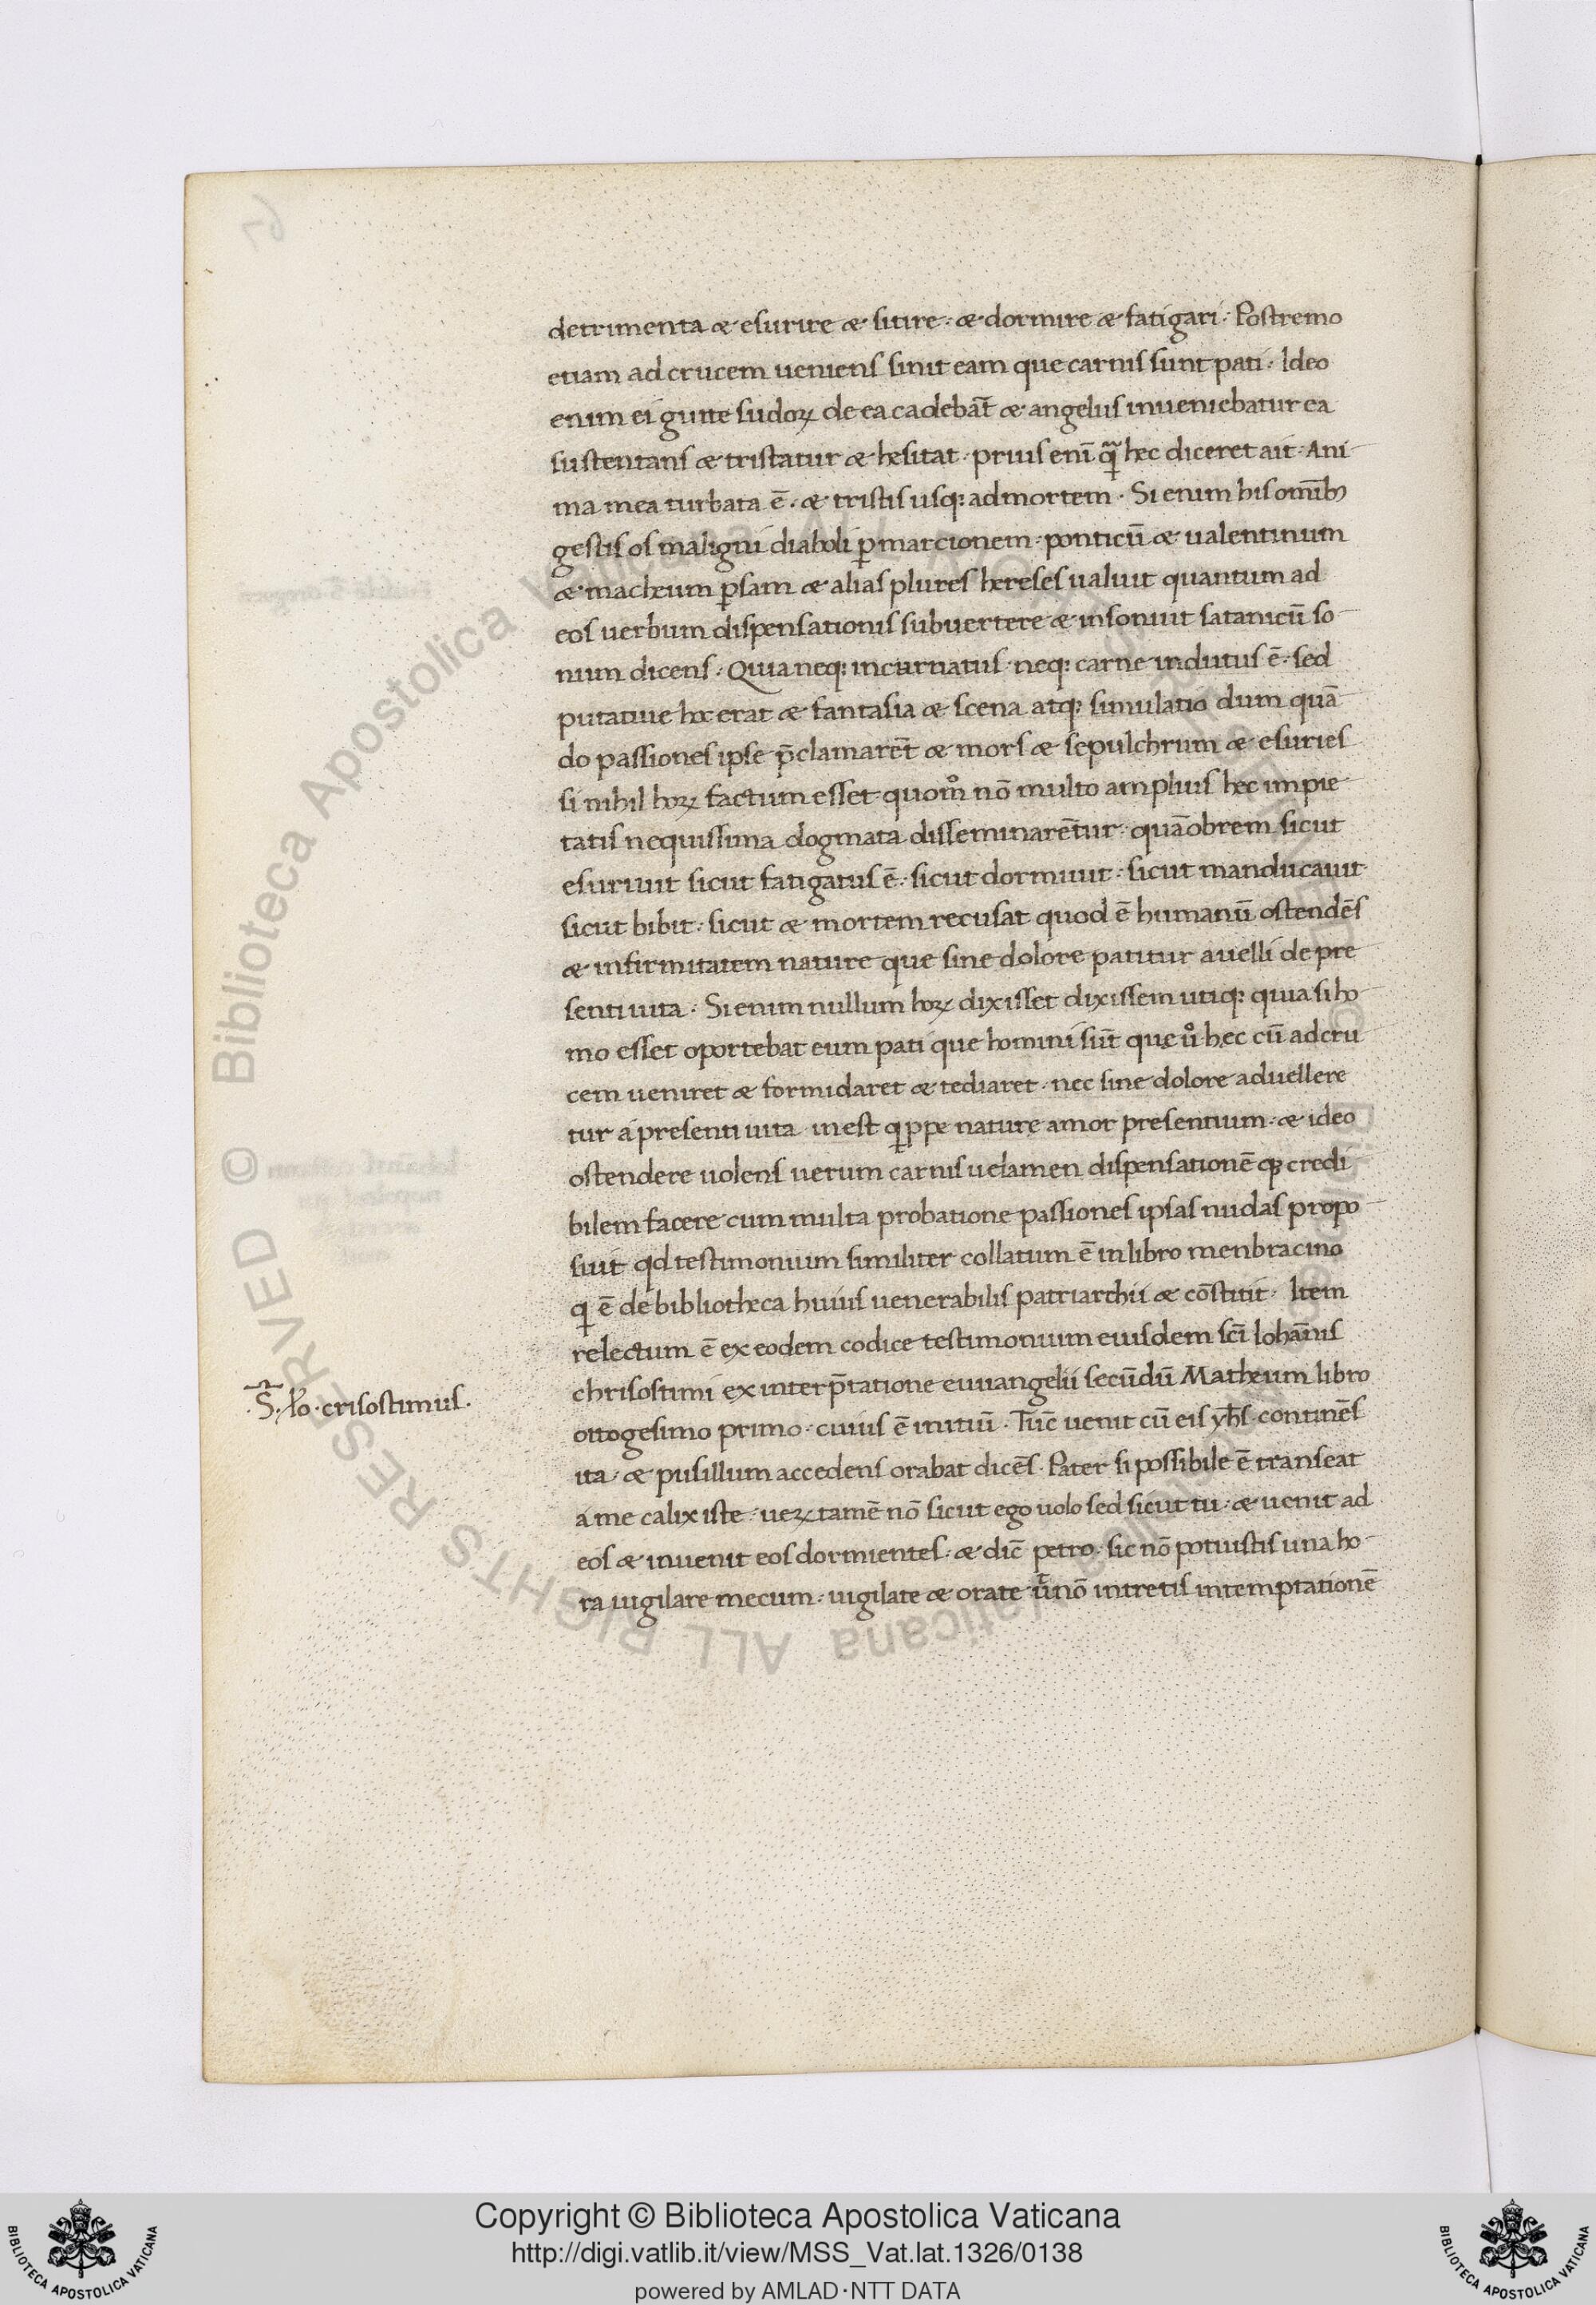 detrimenta æ esurire æ sitire · æ dormire æ fatigari · Postremo
etiam ad crucem ueniens sinit eam que carnis sunt pati · Ideo
enim ei gutte sudoꝝ de ea cadebāt æ angelus inueniebatur ea
sustentans æ tristatur æ hesitat · prius enī qͣ̄ hec diceret ait · Ani
ma mea turbata ē · æ tristis usqꝫ ad mortem · Si enim his omībꝫ
gestis os maligni diaboli ꝑ marcionem · ponticū æ ualentinum
æ macheum ꝑsam æ alias plures hereses ualuit quantum ad
eos uerbum dispensationis subuertere æ insonuit satanicū so
num dicens · Quia neqꝫ incarnatus · neqꝫ carne indutus ē · sed
putatiue hoc erat æ fantasia æ scena atqꝫ simulatio dum quā
do passiones ipse p̄clamarēt æ mors æ sepulchrum æ esuries
si nihil hoꝝ factum esset · quom̊ nō multo amplius hec impie
tatis nequissima dogmata disseminarēt̄ur · quāobrem sicut
esuriuit sicut fatigatus ē · sicut dormiuit · sicut manducauit
sicut bibit · sicut æ mortem recusat quod ē humanū ostendēs
æ infirmitatem nature que sine dolore patitur auelli de pre
senti uita · Si enim nullum hoꝝ dixisset dixissem utiqꝫ quia si ho
mo esset oportebat eum pati que homini sūt que ů hec cū ad cru
cem ueniret æ formidaret æ tediaret · nec sine dolore aduellere
tur a presenti uita inest ꝗppe nature amor presentium · æ ideo
ostendere uolens uerum carnis uelamen dispensationē qꝫ credi
bilem facere cum multa probatione passiones ipsas nudas propo
suit qd testimonium similiter collatum ē in libro menbracino
ꝗ ē de bibliotheca huius uenerabilis patriarchii æ cōstitit · Item
relectum ē ex eodem codice testimonium eiusdem scī Iohānis
chrisostimi ex interp̄tatione euuangelii secūdū Matheum libro
ottogesimo primo · cuius ē initiū · Tūc uenit cū eis yħs · continēs
ita · æ pusillum accedens orabat dicēs · Pater si possibile ē transeat
a me calix iste · ueꝝtamē nō sicut ego uolo sed sicut tu · æ uenit ad
eos æ inuenit eos dormientes · æ dic̄ petro · sic nō potuistis una ho
ra uigilare mecum · uigilate æ orate ů nō intretis in temptationē
· S̄ · Io · crisostimus ·
Copyright © Biblioteca Apostolica Vaticana
http://digi.vatlib.it/view/MSS_Vat.lat.1326/0138
powered by AMLAD·NTT DATA
BIBLIOTECA APOSTOLICA VATICANA
BIBLIOTECA APOSTOLICA VATICANA
© Biblioteca Apostolica Vaticana ALL RIGHTS RESERVED © Biblioteca Apostolica Vaticana ALL RIGHTS RESERVED